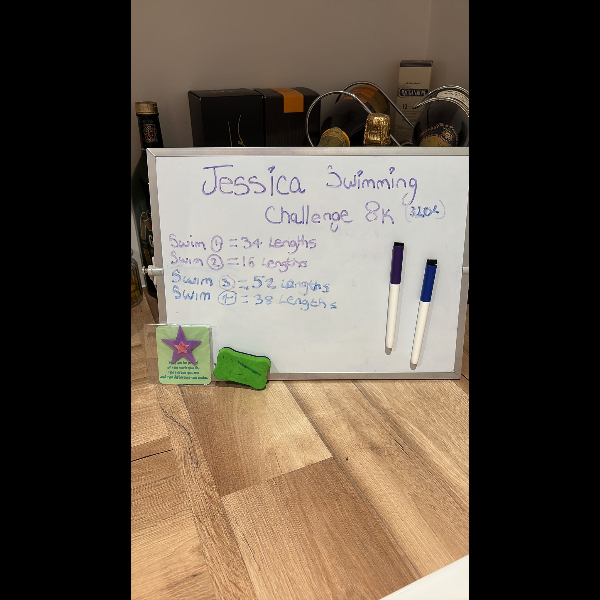 Jessica Swimming
Challenge 8K (320L)
Swim 1 = 34 Lengths
Swim 2 = 16 Lengths
Swim 3 = 52 Lengths
Swim 4 = 38 Lengths